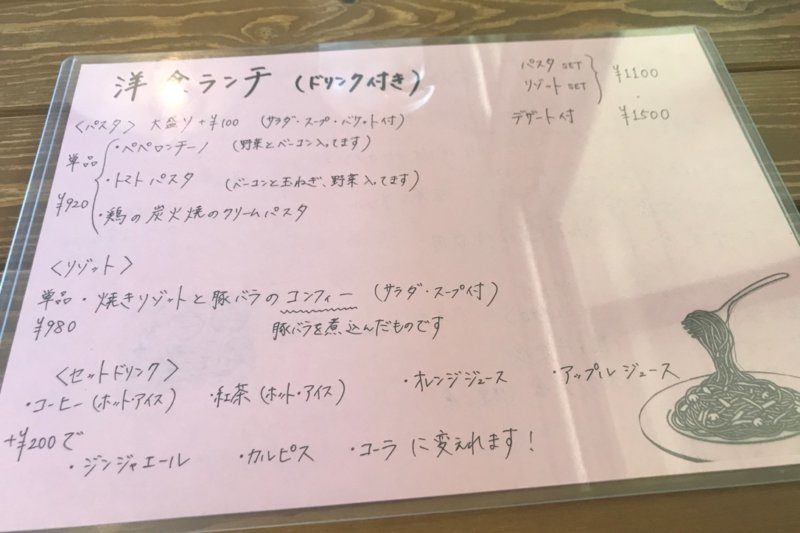 洋食ランチ (ドリンク付き)
パスタ SET
リゾット SET
¥1100
デザート付 ¥1500
〈パスタ〉 大盛り+¥100 (サラダ・スープ・バケット付)
単品
¥920
・ペペロンチーノ (野菜とベーコン入ってます)
・トマトパスタ (ベーコンと玉ねぎ、野菜入ってます)
・鶏の炭火焼のクリームパスタ
〈リゾット〉
単品・焼きリゾットと豚バラのコンフィー (サラダ・スープ付)
¥980 豚バラを煮込んだものです
〈セットドリンク〉
・コーヒー(ホット・アイス) ・紅茶(ホット・アイス) ・オレンジジュース ・アップルジュース
+¥200で
・ジンジャエール ・カルピス ・コーラ に変えれます!